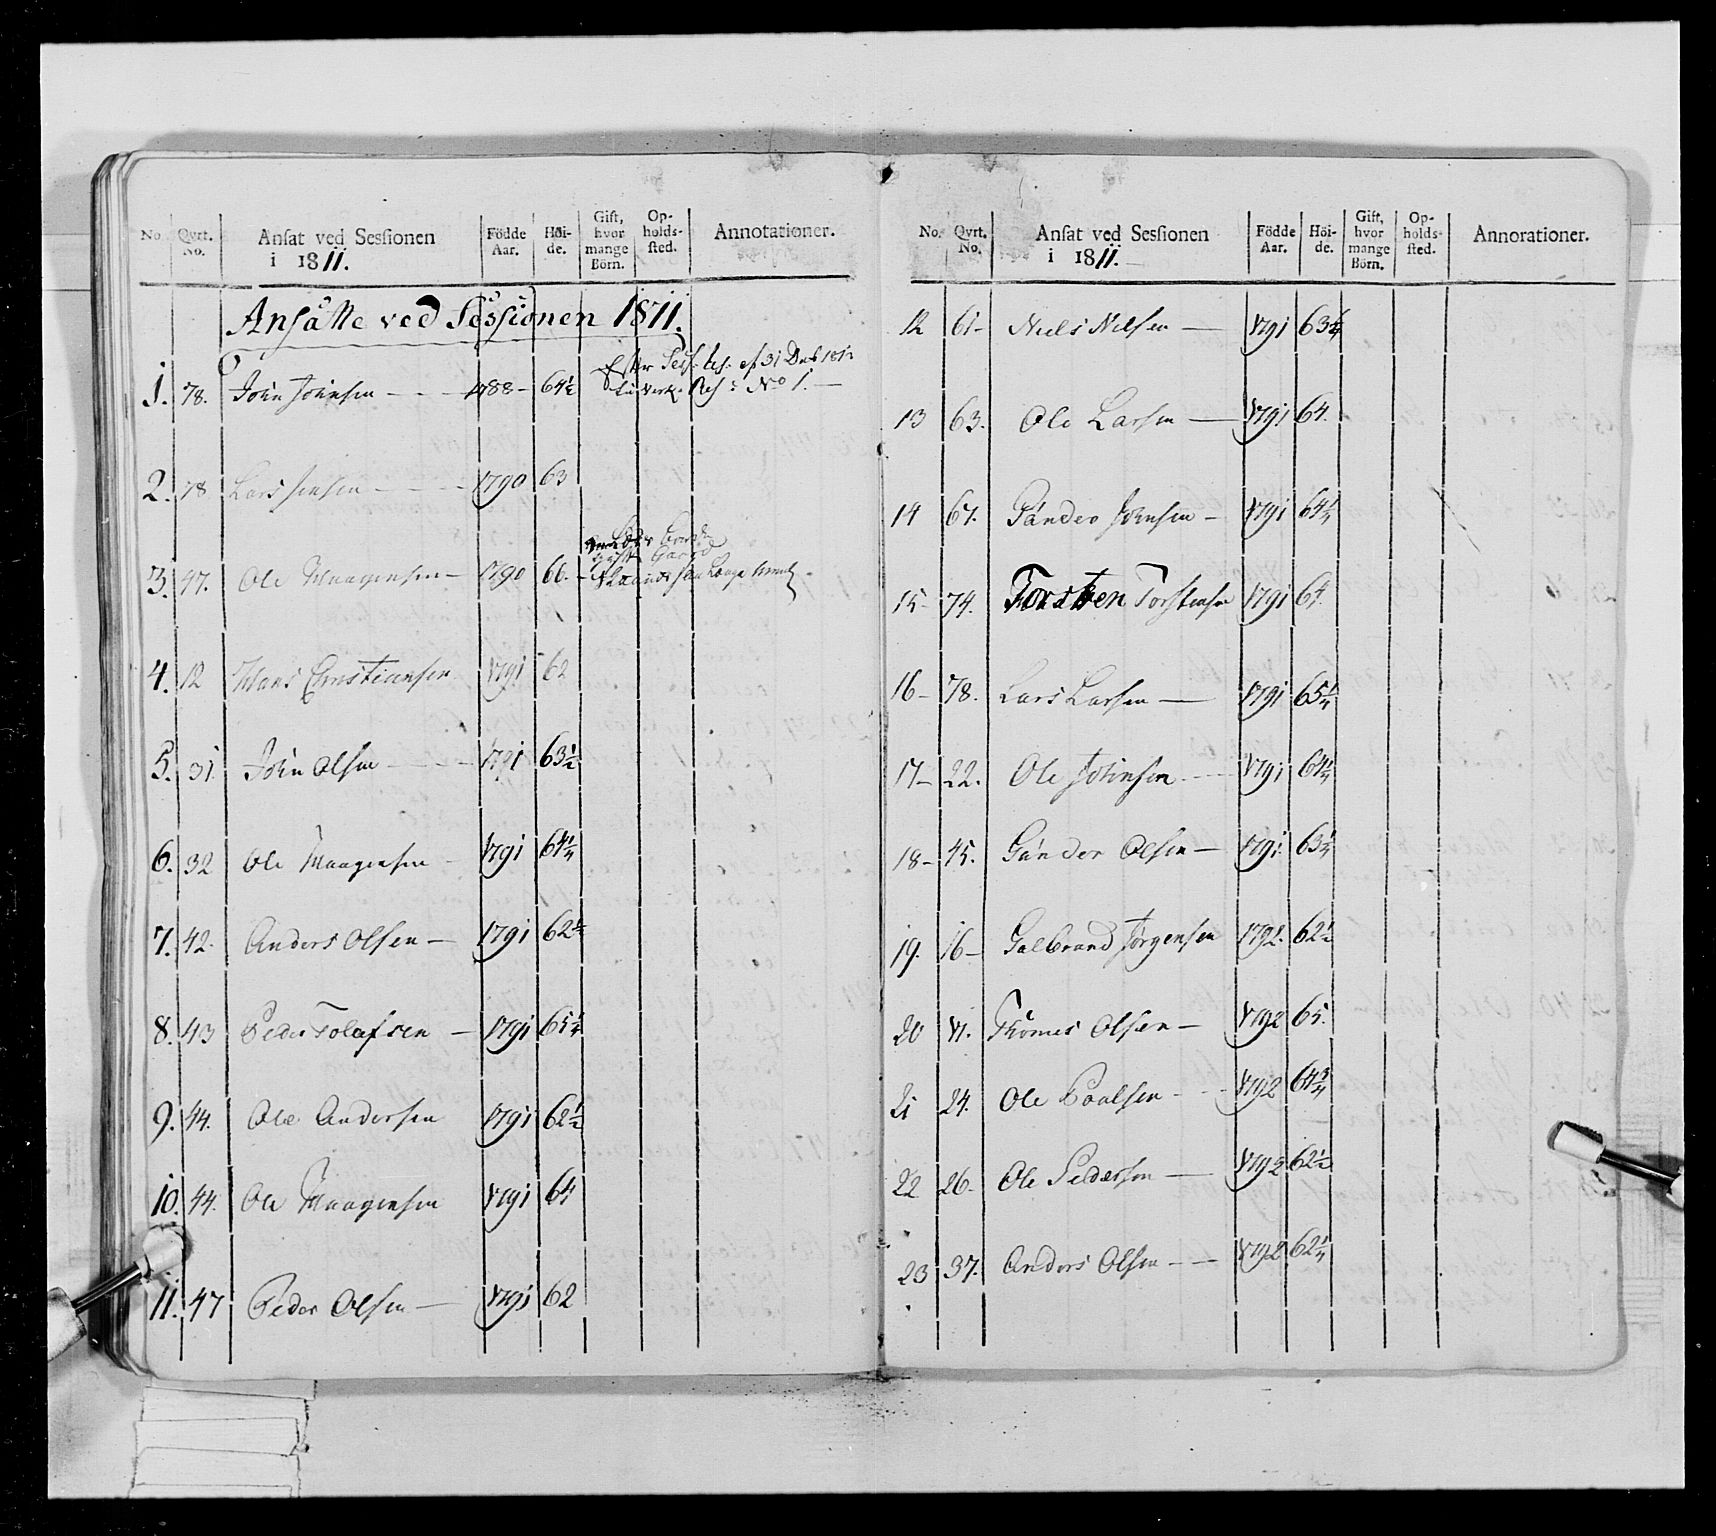 No. Qvrt. No. Ansat ved Sessionen i 1811. Födde Aar. Höi- de. Gift, hvor mange Börn. Op- holds- sted. Annotationer.
Ansatte ved Sessionen 1811.
1. 78. John Johnsen - - 1788 - 64 1/2
No 1. -
2. 78 Lars Jensen - - - 1790 63
3. 47. Ole Maagensen - 1790 66. -
4. 12 Hans Christiansen 1791 62
5. 31. John Olsen - - - 1791 63 1/2
6. 32 Ole Maagensen - 1791 64 1/4
7. 42. Anders Olsen - 1791 62 1/2
8. 43 Peder Tolafsen - 1791 65 1/4
9. 44. Ole Andersen 1791 62 1/2
10. 44. Ole Maagensen 1791 64
11. 47 Peder Olsen - 1791 62
No. Qvrt. No. Ansat ved Sessionen i 1811. - Födde Aar. Höi- de. Gift, hvor mange Börn. Op- holds- sted. Annorationer.
12 61 - Niels Nilsen - 1791 63 1/4
13 63. Ole Larsen - 1791 64.
14 67. Gunder Johnsen - 1791 64 1/4
15 - 74. Torsten Torstensen 1791 64
16 - 78. Lars Larsen - 1791 65 1/4
17 - 22. Ole Johnsen - - 1791 64 1/4
18 - 45. Gunder Olsen - 1791 63 1/4
19. 16 - Gulbrand Jørgensen 1792. 62 1/2
20 Thomes Olsen - 1792 65.
21 24. Ole Poulsen - - 1792 64 3/4
22 26. Ole Pedersen - 1792 62 1/2
23 37. Anders Olsen - - 1792 62 1/4